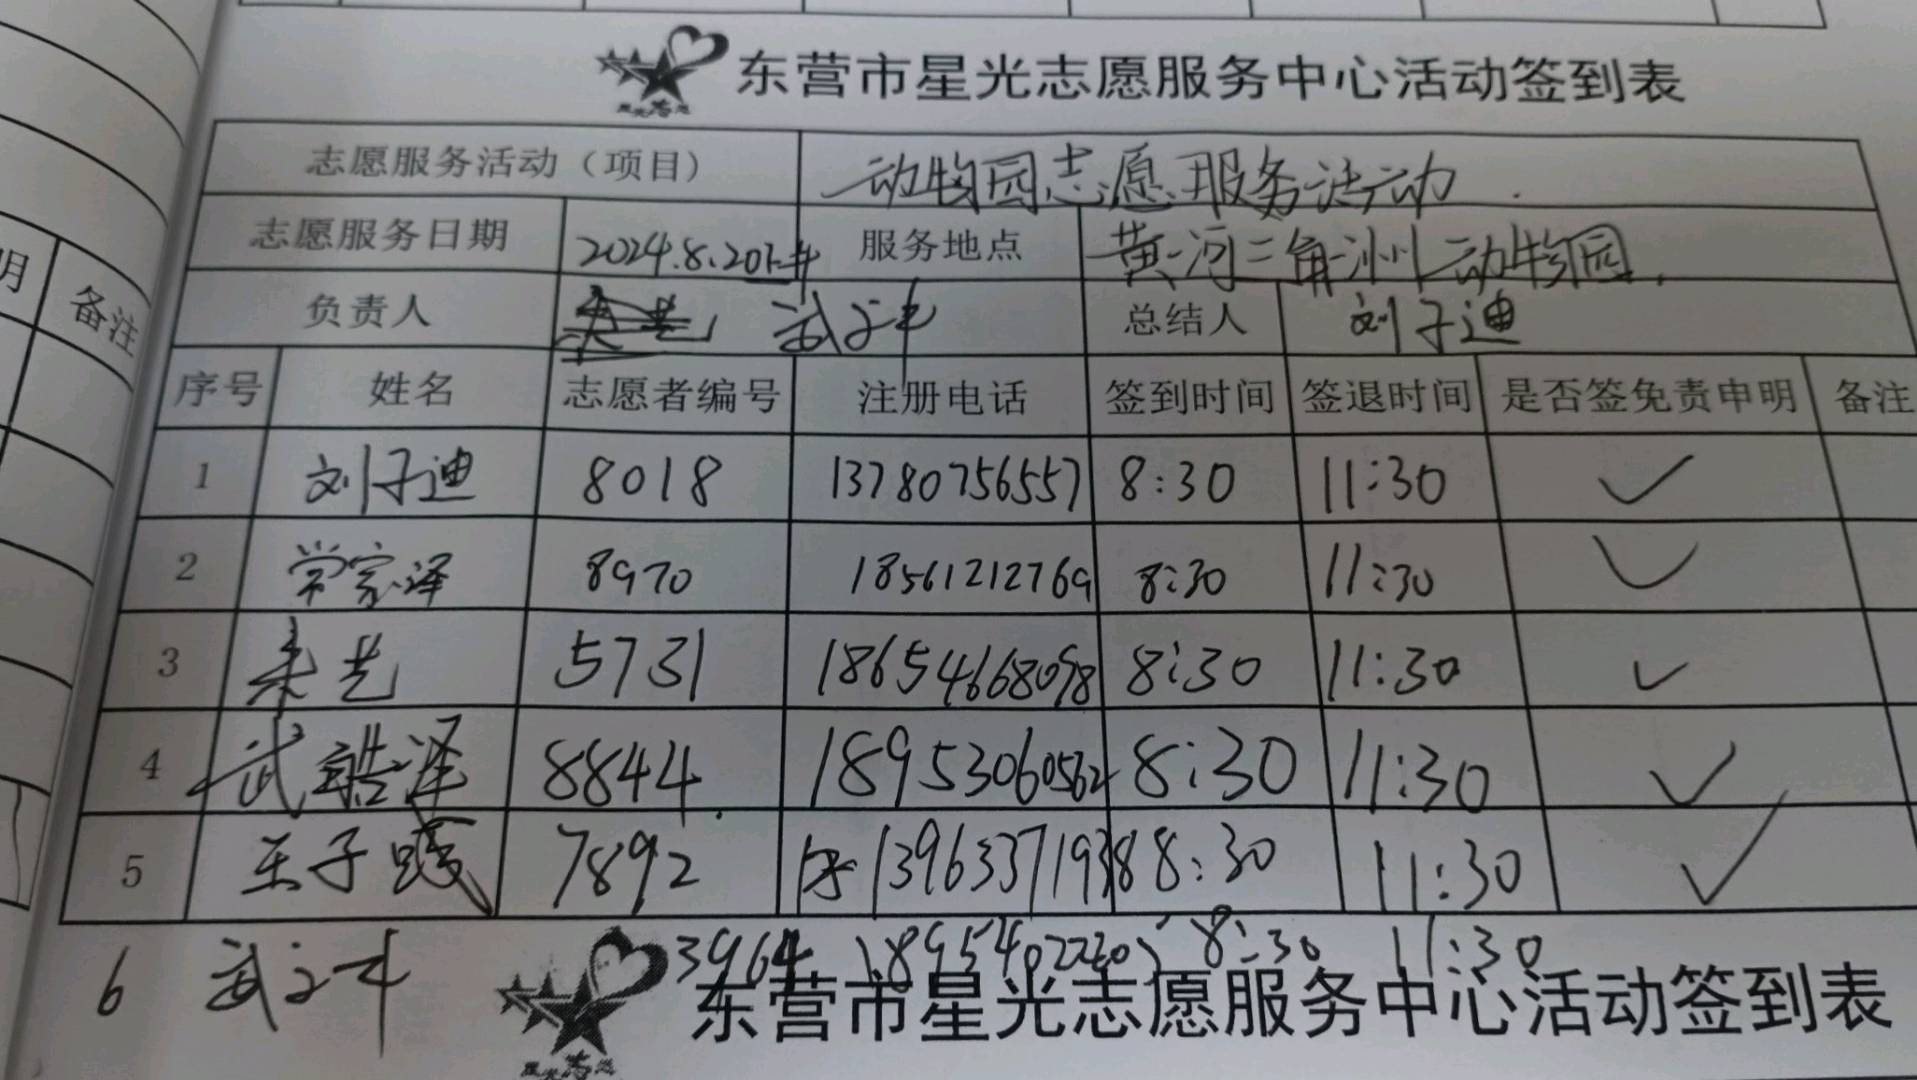 东营市星光志愿服务中心活动签到表
志愿服务活动（项目） 动物园志愿服务活动.
志愿服务日期 2024.8.20 服务地点 黄河三角洲动物园.
负责人 总结人 刘子迪
明 备注
序号 姓名 志愿者编号 注册电话 签到时间 签退时间 是否签免责申明 备注
1 刘子迪 8018 13780756557 8:30 11:30 ✓
2 常家泽 8970 18561212769 8:30 11:30 ✓
3 5731 18654668098 8:30 11:30 ✓
4 武皓泽 8844. 18953060562 8:30 11:30 ✓
5 王子 7892 13963371938 8:30 11:30 ✓
6 3964 8:30 11:30
东营市星光志愿服务中心活动签到表